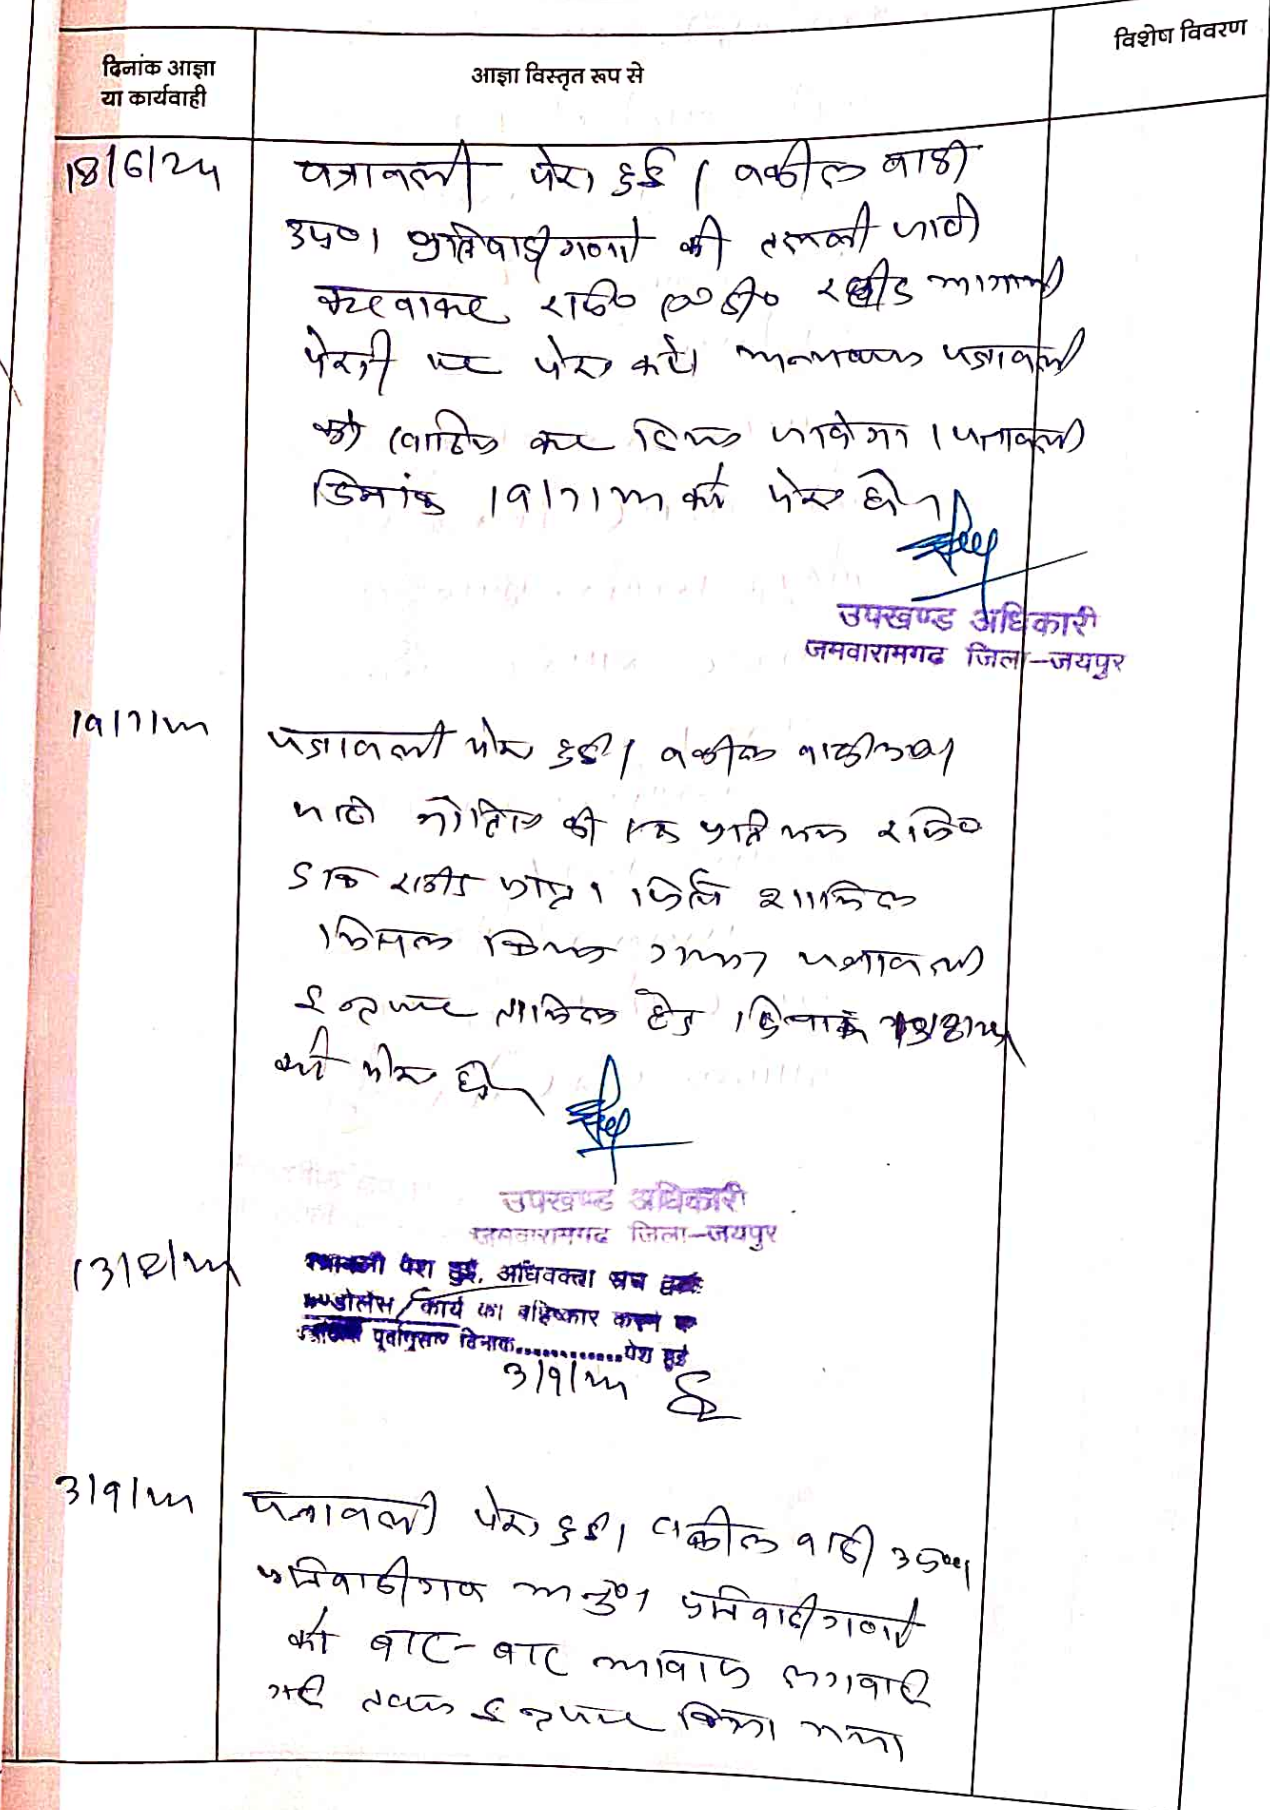 विशेष विवरण
दिनांक आज्ञा
या कार्यवाही
आज्ञा विस्तृत रूप से
18/6/24
पत्रावली पेश हुई। वकील वादी
उप०। प्रतिवादीगणों की तलबी जारी
करवाकर रजि० ए०डी० रसीद आगामी
पेशी पर पेश करें। अन्यथा पत्रावली
को खारिज कर दिया जावेगा। पत्रावली
दिनांक 19/7/24 को पेश हो।
उपखण्ड अधिकारी
जमवारामगढ जिला-जयपुर
19/7/24
पत्रावली पेश हुई। वकील वादी उप०।
जारी नोटिस की एक प्रति मय रजि०
डाक रसीद प्राप्त।
शामिल
मिसल किया गया। पत्रावली
इन्तजार तामिल हेतु दिनांक 13/8/24
को पेश हो।
उपखण्ड अधिकारी
जमवारामगढ जिला-जयपुर
13/8/24
पत्रावली पेश हुई, अधिवक्ता
कण्डोलेंस/कार्य का बहिष्कार करने
पूर्वानुसार दिनांक.............पेश हुई
3/9/24
3/9/24
पत्रावली पेश हुई। वकील वादी उप०।
प्रतिवादीगण अनु०। प्रतिवादीगणों
को बार-बार आवाज लगवाई
गई तथा इन्तजार किया गया